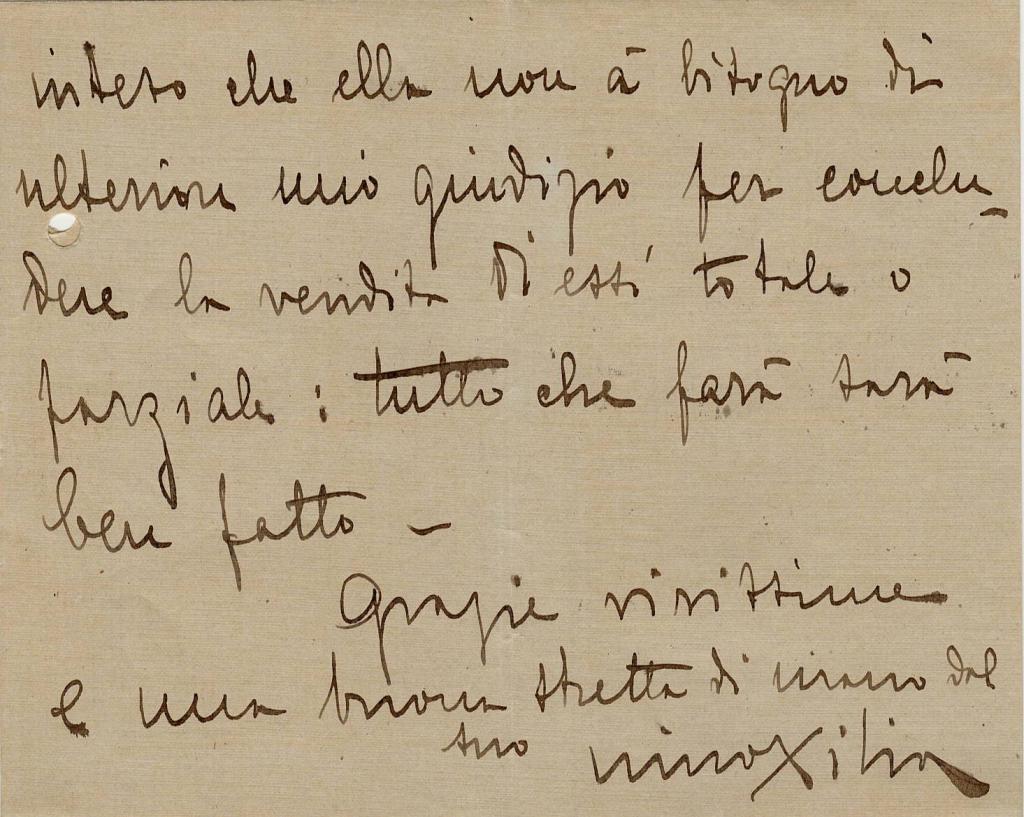 inteso che ella non à bisogno di
ulteriore mio giudizio per conclu-
dere la vendita di essi totale o
parziale : tutto che farà sarà
ben fatto –
Grazie vivissime
e una buona stretta di mano dal
suo ninoxilia